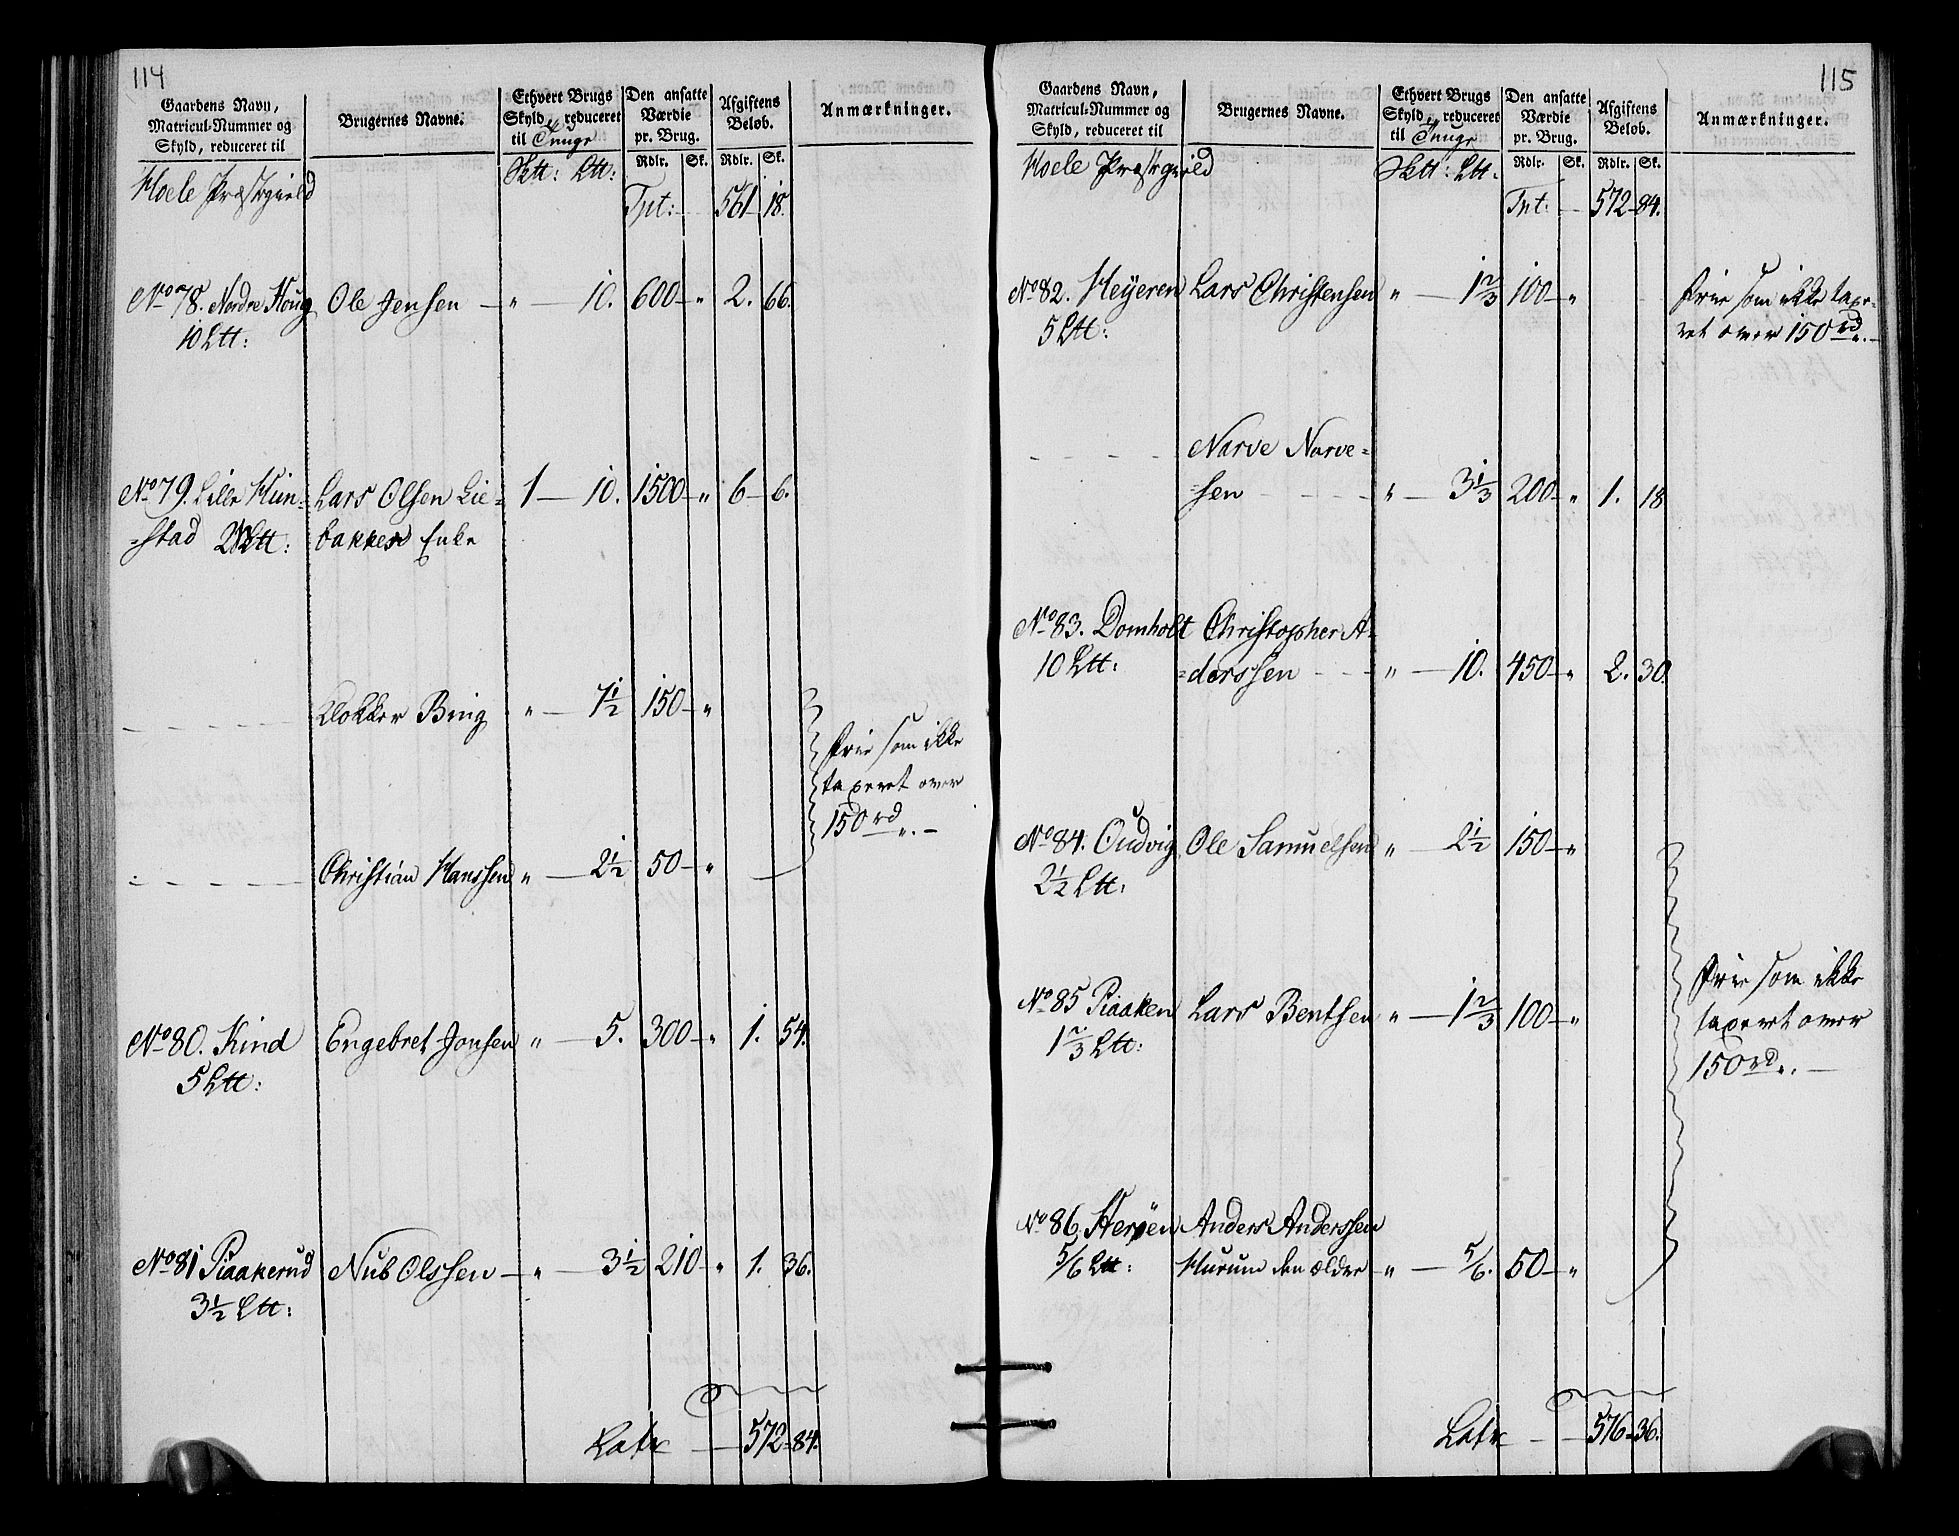 114
Gaardens Navn,
Matricul-Nummer og
Skyld, reduceret til
Brugernes Navne.
Ethvert Brugs
Skyld, reduceret
til Tunge
Den ansatte
Værdie
pr. Brug.
Afgiftens
Beløb.
Anmærkninger.
Rdlr. Sk. Rdlr. Sk.
Hoele Præstegield
Sktt: Ltt:
Tpt: 561 18.
No 78. Nordre Houg Ole Jensen — " — 10. 600 — " 2. 66.
10 Ltt:
No 79. Lille Hun= Lars Olsen Lie= 1 — 10. 1500 — " 6 — 6.
=stad Ltt: bakken Enke
Klokker Bing " — 7½ 150 — "
Frie som ikke
taxeret over
150 rd ".—
Christian Hanssen " — 2½ 50 — "
No 80. Kind Engebret Jonsen " — 5. 300 — " 1. 54.
5 Ltt:
No 81 Piaakerud Nub Olssen — " — 3½ 210 — " 1. 36.
3½ Ltt:
Latr — 572 - 84.
115
Gaardens Navn,
Matricul-Nummer og
Skyld, reduceret til
Brugernes Navne.
Ethvert Brugs
Skyld, reduceret
til Tunge
Den ansatte
Værdie
pr. Brug.
Afgiftens
Beløb.
Anmærkninger.
Rdlr. Sk. Rdlr. Sk.
Hoele Præstegield
Sktt: Ltt.
Tpt: — 572 - 84.
No 82. Heyeren Lars Christensen " — 1⅔ 100 — " Frie som ikke taxe=
5 Ltt: ret over 150 rd ".—
Narve Narve=
=sen " — 3⅓ 200 — " 1. 18
No 83. Domholt Christopher A=
10 Ltt: =derssen " — 10. 450 — " 2. 30
No 84. Oudvig Ole Samuelsen " — 2½ 150 — "
2½ Ltt:
Frie som ikke
taxeret over
150 rd ". —
No 85 Piaaken Lars Bentsen " — 1⅔ 100 — "
1⅔ Ltt:
No 86 Herøen Anders Anderssen
5/6 Ltt: Hurum den ælder " — 5/6. 50 — "
Latr — 576 - 36.